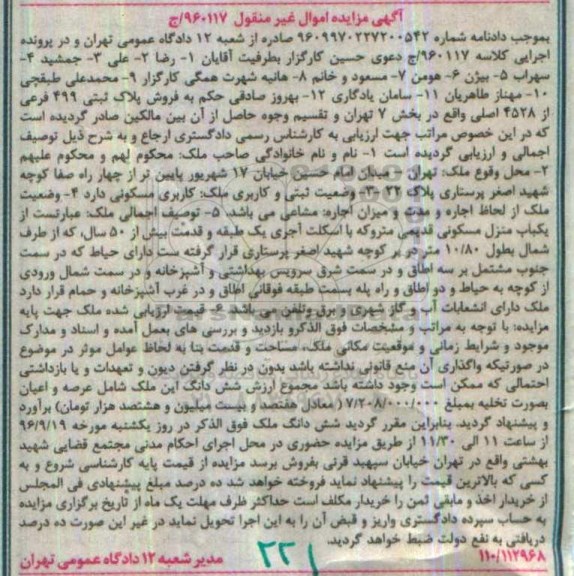 آگهی مزایده اموال غیر منقول ۹۶۰۱۱۷/ج
بموجب دادنامه شماره ۹۶۰۹۹۷۰۲۲۷۲۰۰۵۴۲ صادره از شعبه ۱۲ دادگاه عمومی تهران و در پرونده
اجرایی کلاسه ۹۶۰۱۱۷/ج دعوی حسین کارگزار بطرفیت آقایان ۱- رضا ۲- علی ۳- جمشید ۴-
سهراب ۵- بیژن ۶- هومن ۷- مسعود و خانم ۸- هانیه شهرت همگی کارگزار ۹- محمدعلی طبقچی
۱۰- مهناز طاهریان ۱۱- سامان یادگاری ۱۲- بهروز صادقی حکم به فروش پلاک ثبتی ۴۹۹ فرعی
از ۴۵۲۸ اصلی واقع در بخش ۷ تهران و تقسیم وجوه حاصل از آن بین مالکین صادر گردیده است
که در این خصوص مراتب جهت ارزیابی به کارشناس رسمی دادگستری ارجاع و به شرح ذیل توصیف
اجمالی و ارزیابی گردیده است ۱- نام و نام خانوادگی صاحب ملک: محکوم لهم و محکوم علیهم
۲- محل وقوع ملک: تهران - میدان امام حسین خیابان ۱۷ شهریور پایین تر از چهار راه صفا کوچه
شهید اصغر پرستاری پلاک ۲۲ ۳- وضعیت ثبتی و کاربری ملک: کاربری مسکونی دارد ۴- وضعیت
ملک از لحاظ اجاره و مدت و میزان اجاره: مشاعی می باشد. ۵- توصیف اجمالی ملک: عبارتست از
یکباب منزل مسکونی قدیمی متروکه با اسکلت آجری یک طبقه و قدمت بیش از ۵۰ سال، که از طرف
شمال بطول ۱۰/۸۰ متر در بر کوچه شهید اصغر پرستاری قرار گرفته ست دارای حیاط که در سمت
جنوب مشتمل بر سه اطاق و در سمت شرق سرویس بهداشتی و آشپزخانه و در سمت شمال ورودی
از کوچه به حیاط و دو اطاق و راه پله بسمت طبقه فوقانی اطاق و در غرب آشپزخانه و حمام قرار دارد
ملک دارای انشعابات آب و گاز شهری و برق وتلفن می باشد ۶- قیمت ارزیابی شده ملک جهت پایه
مزایده: با توجه به مراتب و مشخصات فوق الذکرو بازدید و بررسی های بعمل آمده و اسناد و مدارک
موجود و شرایط زمانی و موقعیت مکانی ملک، مساحت و قدمت بنا به لحاظ عوامل موثر در موضوع
در صورتیکه واگذاری آن منع قانونی نداشته باشد بدون در نظر گرفتن دیون و تعهدات و یا بازداشتی
احتمالی که ممکن است وجود داشته باشد مجموع ارزش شش دانگ این ملک شامل عرصه و اعیان
بصورت تخلیه بمبلغ ۱۷/۲۰۸/۰۰۰/۰۰۰ معادل هفتصد و بیست میلیون و هشتصد هزار تومان) برآورد
و پیشنهاد گردید. بنابراین مقرر گردید شش دانگ ملک فوق الذکر در روز یکشنبه مورخه ۹۶/۹/۱۹
از ساعت ۱۱ الی ۱۱/۳۰ از طریق مزایده حضوری در محل اجرای احکام مدنی مجتمع قضایی شهید
بهشتی واقع در تهران خیابان سپهبد قرنی بفروش برسد مزایده از قیمت پایه کارشناسی شروع و به
کسی که بالاترین قیمت را پیشنهاد نماید فروخته خواهد شد ده درصد مبلغ پیشنهادی فی المجلس
از خریدار اخذ و مابقی ثمن را خریدار مکلف است حداکثر ظرف مهلت یک ماه از تاریخ برگزاری مزایده
به حساب سپرده دادگستری واریز و قبض آن را به این اجرا تحویل نماید در غیر این صورت ده درصد
دریافتی به نفع دولت ضبط خواهد گردید.
۱۱۰/۱۱۲۹۶۸ ۲۲۱ مدیر شعبه ۱۲ دادگاه عمومی تهران